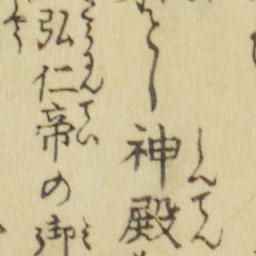 とし神殿
しんでん
弘仁帝の御
こうにんてい